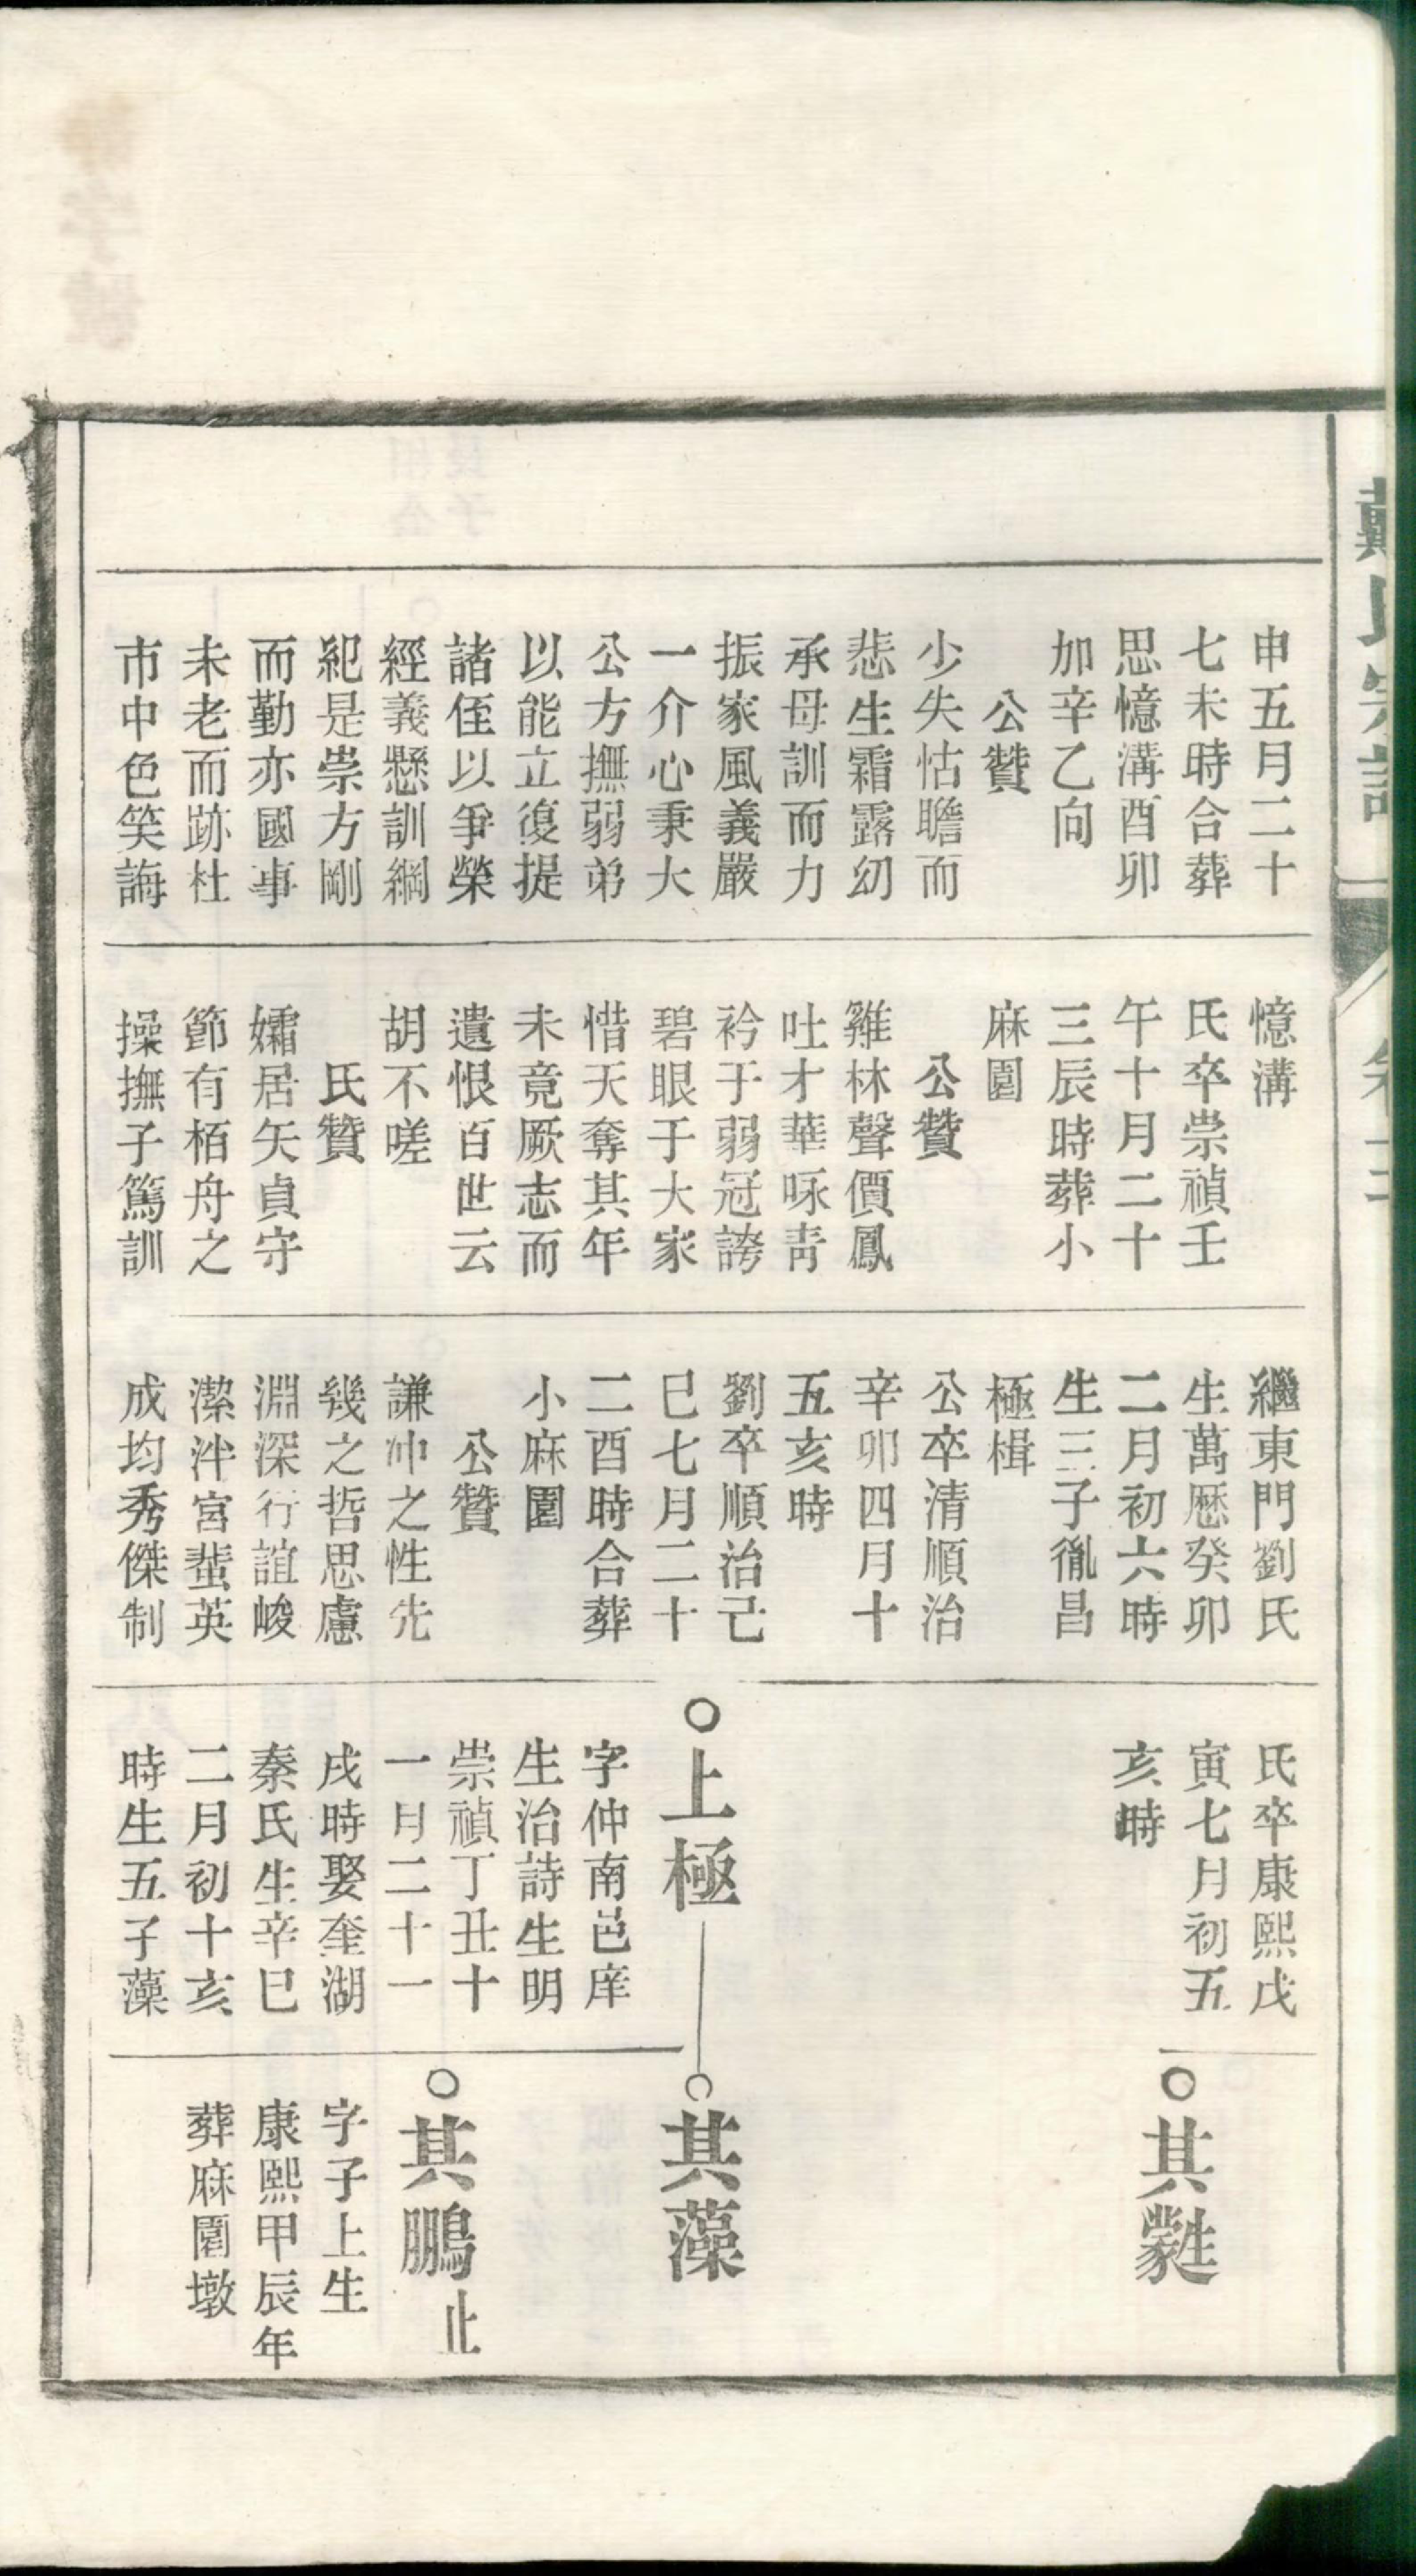 戴氏宗譜
卷十二
申五月二十
七未時合葬
思憶溝酉卯
加辛乙向
公贊
少失怙瞻而
悲生霜露幼
承母訓而力
振家風義嚴
一介心秉大
公方撫弱弟
以能立復提
諸侄以爭榮
經義懸訓綱
紀是崇方剛
而勤亦國事
未老而跡杜
市中色笑誨
憶溝
氏卒崇禎壬
午十月二十
三辰時葬小
麻園
公贊
雞林聲價鳳
吐才華咏靑
衿于弱冠誇
碧眼于大家
惜天奪其年
未竟厥志而
遺恨百世云
胡不嗟
氏贊
孀居矢貞守
節有栢舟之
操撫子篤訓
繼東門劉氏
生萬厯癸卯
二月初六時
生三子胤昌
極楫
公卒清順治
辛卯四月十
五亥時
劉卒順治己
巳七月二十
二酉時合葬
小麻園
公贊
謙冲之性先
幾之哲思慮
淵深行誼峻
潔泮宮蜚英
成均秀傑制
氏卒康熙戊
寅七月初五
亥時
上極
字仲南邑庠
生治詩生明
崇禎丁丑十
一月二十一
戌時娶奎湖
秦氏生辛巳
二月初十亥
時生五子藻
其
其藻
其鵬止
字子上生
康熙甲辰年
葬麻園墩